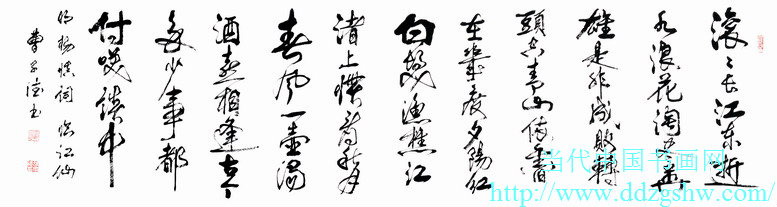 滚〻长江东逝
水浪花淘盡英
雄是非成敗轉
頭空青山依舊
在幾度夕陽红
白髮漁樵江
渚上慣看秋月
春風一壶濁
酒喜相逢古今
多少事都
付笑談中
明杨慎词临江仙
当代中国书画网
http://www.ddzgshw.com/